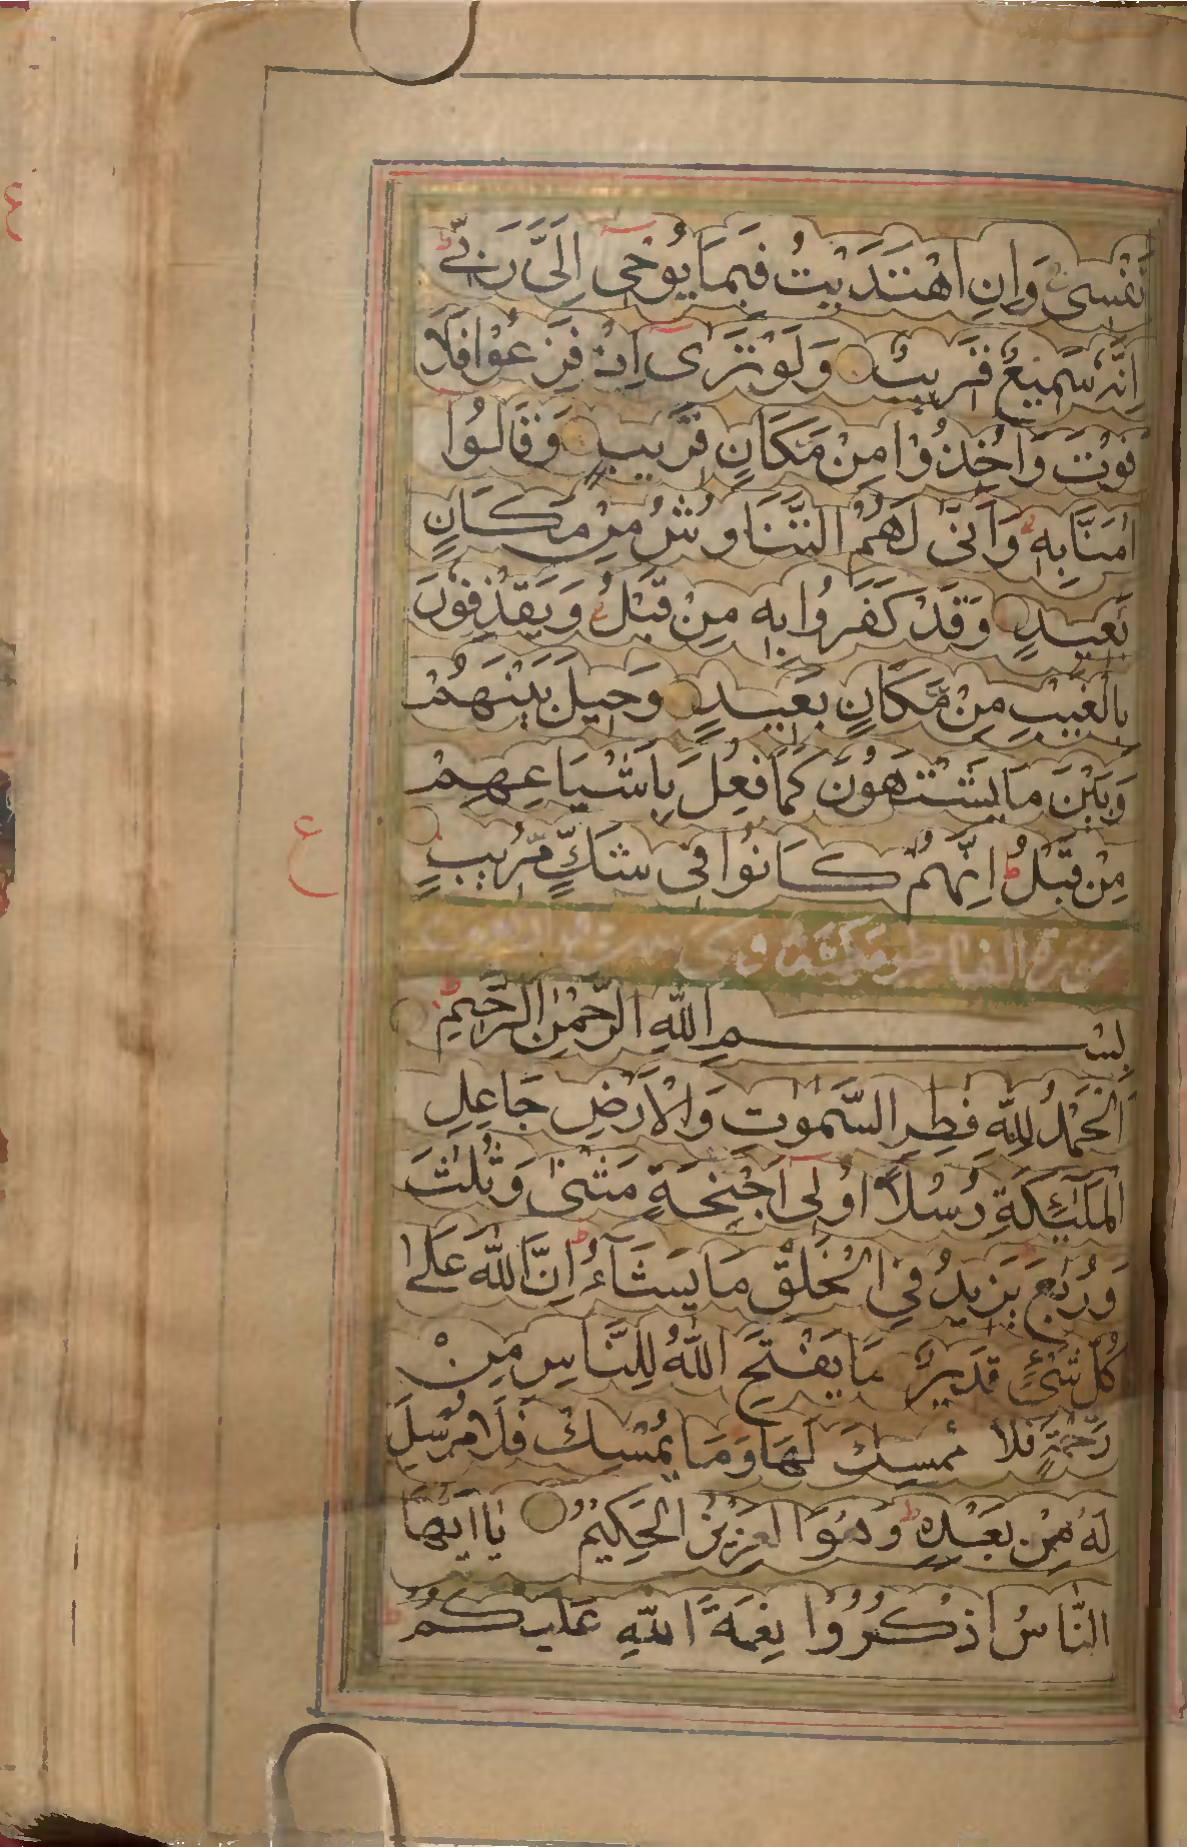 نَفْسِىْ وَاِنِ اهْتَدَيْتُ فَبِمَا يُوْحِىْ اِلَىَّ رَبِّىْ ط
اِنَّهٗ سَمِيْعٌ قَرِيْبٌ وَلَوْ تَرٰى اِذْ فَزِعُوْا فَلَا
فَوْتَ وَاُخِذُوْا مِنْ مَكَانٍ قَرِيْبٍ وَقَالُوْا
اٰمَنَّا بِهٖ وَاَنّٰى لَهُمُ التَّنَاوُشُ مِنْ مَكَانٍ
بَعِيْدٍ وَقَدْ كَفَرُوْا بِهٖ مِنْ قَبْلُ وَيَقْذِفُوْنَ
بِالْغَيْبِ مِنْ مَّكَانٍ بَعِيْدٍ وَحِيْلَ بَيْنَهُمْ
وَبَيْنَ مَا يَشْتَهُوْنَ كَمَا فُعِلَ بِاَشْيَاعِهِمْ
مِنْ قَبْلُ ط اِنَّهُمْ كَانُوْا فِىْ شَكٍّ مُّرِيْبٍ
ع
بِسْمِ اللّٰهِ الرَّحْمٰنِ الرَّحِيْمِ ط
اَلْحَمْدُ لِلّٰهِ فٰطِرِ السَّمٰوٰتِ وَالْاَرْضِ جَاعِلِ
الْمَلٰٓئِكَةِ رُسُلًا اُولِىْ اَجْنِحَةٍ مَثْنٰى وَثُلٰثَ
وَرُبٰعَ يَزِيْدُ فِى الْخَلْقِ مَا يَشَآءُ ط اِنَّ اللّٰهَ عَلٰى
كُلِّ شَىْءٍ قَدِيْرٌ مَا يَفْتَحِ اللّٰهُ لِلنَّاسِ مِنْ
رَّحْمَةٍ فَلَا مُمْسِكَ لَهَا وَمَا يُمْسِكْ فَلَا مُرْسِلَ
لَهٗ مِنْ بَعْدِهٖ ط وَهُوَ الْعَزِيْزُ الْحَكِيْمُ يٰااَيُّهَا
النَّاسُ اذْكُرُوْا نِعْمَةَ اللّٰهِ عَلَيْكُمْ ط